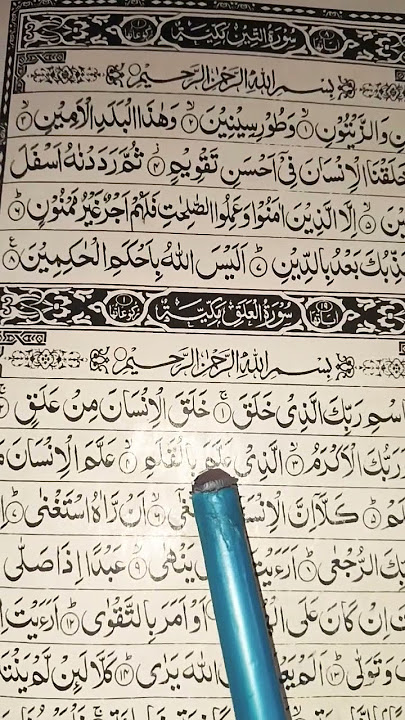 سُوْرَةُ التِّيْنِ مَكِّيَّةٌ
بِسْمِ اللّٰهِ الرَّحْمٰنِ الرَّحِيْمِ
وَالزَّيْتُوْنِ ۱ وَطُوْرِ سِيْنِيْنَ ۲ وَهٰذَا الْبَلَدِ الْاَمِيْنِ ۳
خَلَقْنَا الْاِنْسَانَ فِيْٓ اَحْسَنِ تَقْوِيْمٍ ۴ ثُمَّ رَدَدْنٰهُ اَسْفَلَ
۵ اِلَّا الَّذِيْنَ اٰمَنُوْا وَعَمِلُوا الصّٰلِحٰتِ فَلَهُمْ اَجْرٌ غَيْرُ مَمْنُوْنٍ ۶
بَعْدُ بِالدِّيْنِ ۷ اَلَيْسَ اللّٰهُ بِاَحْكَمِ الْحٰكِمِيْنَ ۸
سُوْرَةُ الْعَلَقِ مَكِّيَّةٌ
بِسْمِ اللّٰهِ الرَّحْمٰنِ الرَّحِيْمِ
اسْمِ رَبِّكَ الَّذِيْ خَلَقَ ۱ خَلَقَ الْاِنْسَانَ مِنْ عَلَقٍ ۲
وَرَبُّكَ الْاَكْرَمُ ۳ الَّذِيْ عَلَّمَ بِالْقَلَمِ ۴ عَلَّمَ الْاِنْسَانَ
۵ كَلَّآ اِنَّ ۶ اَنْ رَّاٰهُ اسْتَغْنٰى ۷
الرُّجْعٰى ۸ اَرَءَيْتَ يَنْهٰى ۹ عَبْدًا اِذَا صَلّٰى
اِنْ كَانَ عَلَى اَوْ اَمَرَ بِالتَّقْوٰى ۱۲ اَرَءَيْتَ
وَتَوَلّٰى ۱۳ اَلَمْ اللّٰهَ يَرٰى ۱۴ كَلَّا لَئِنْ لَّمْ